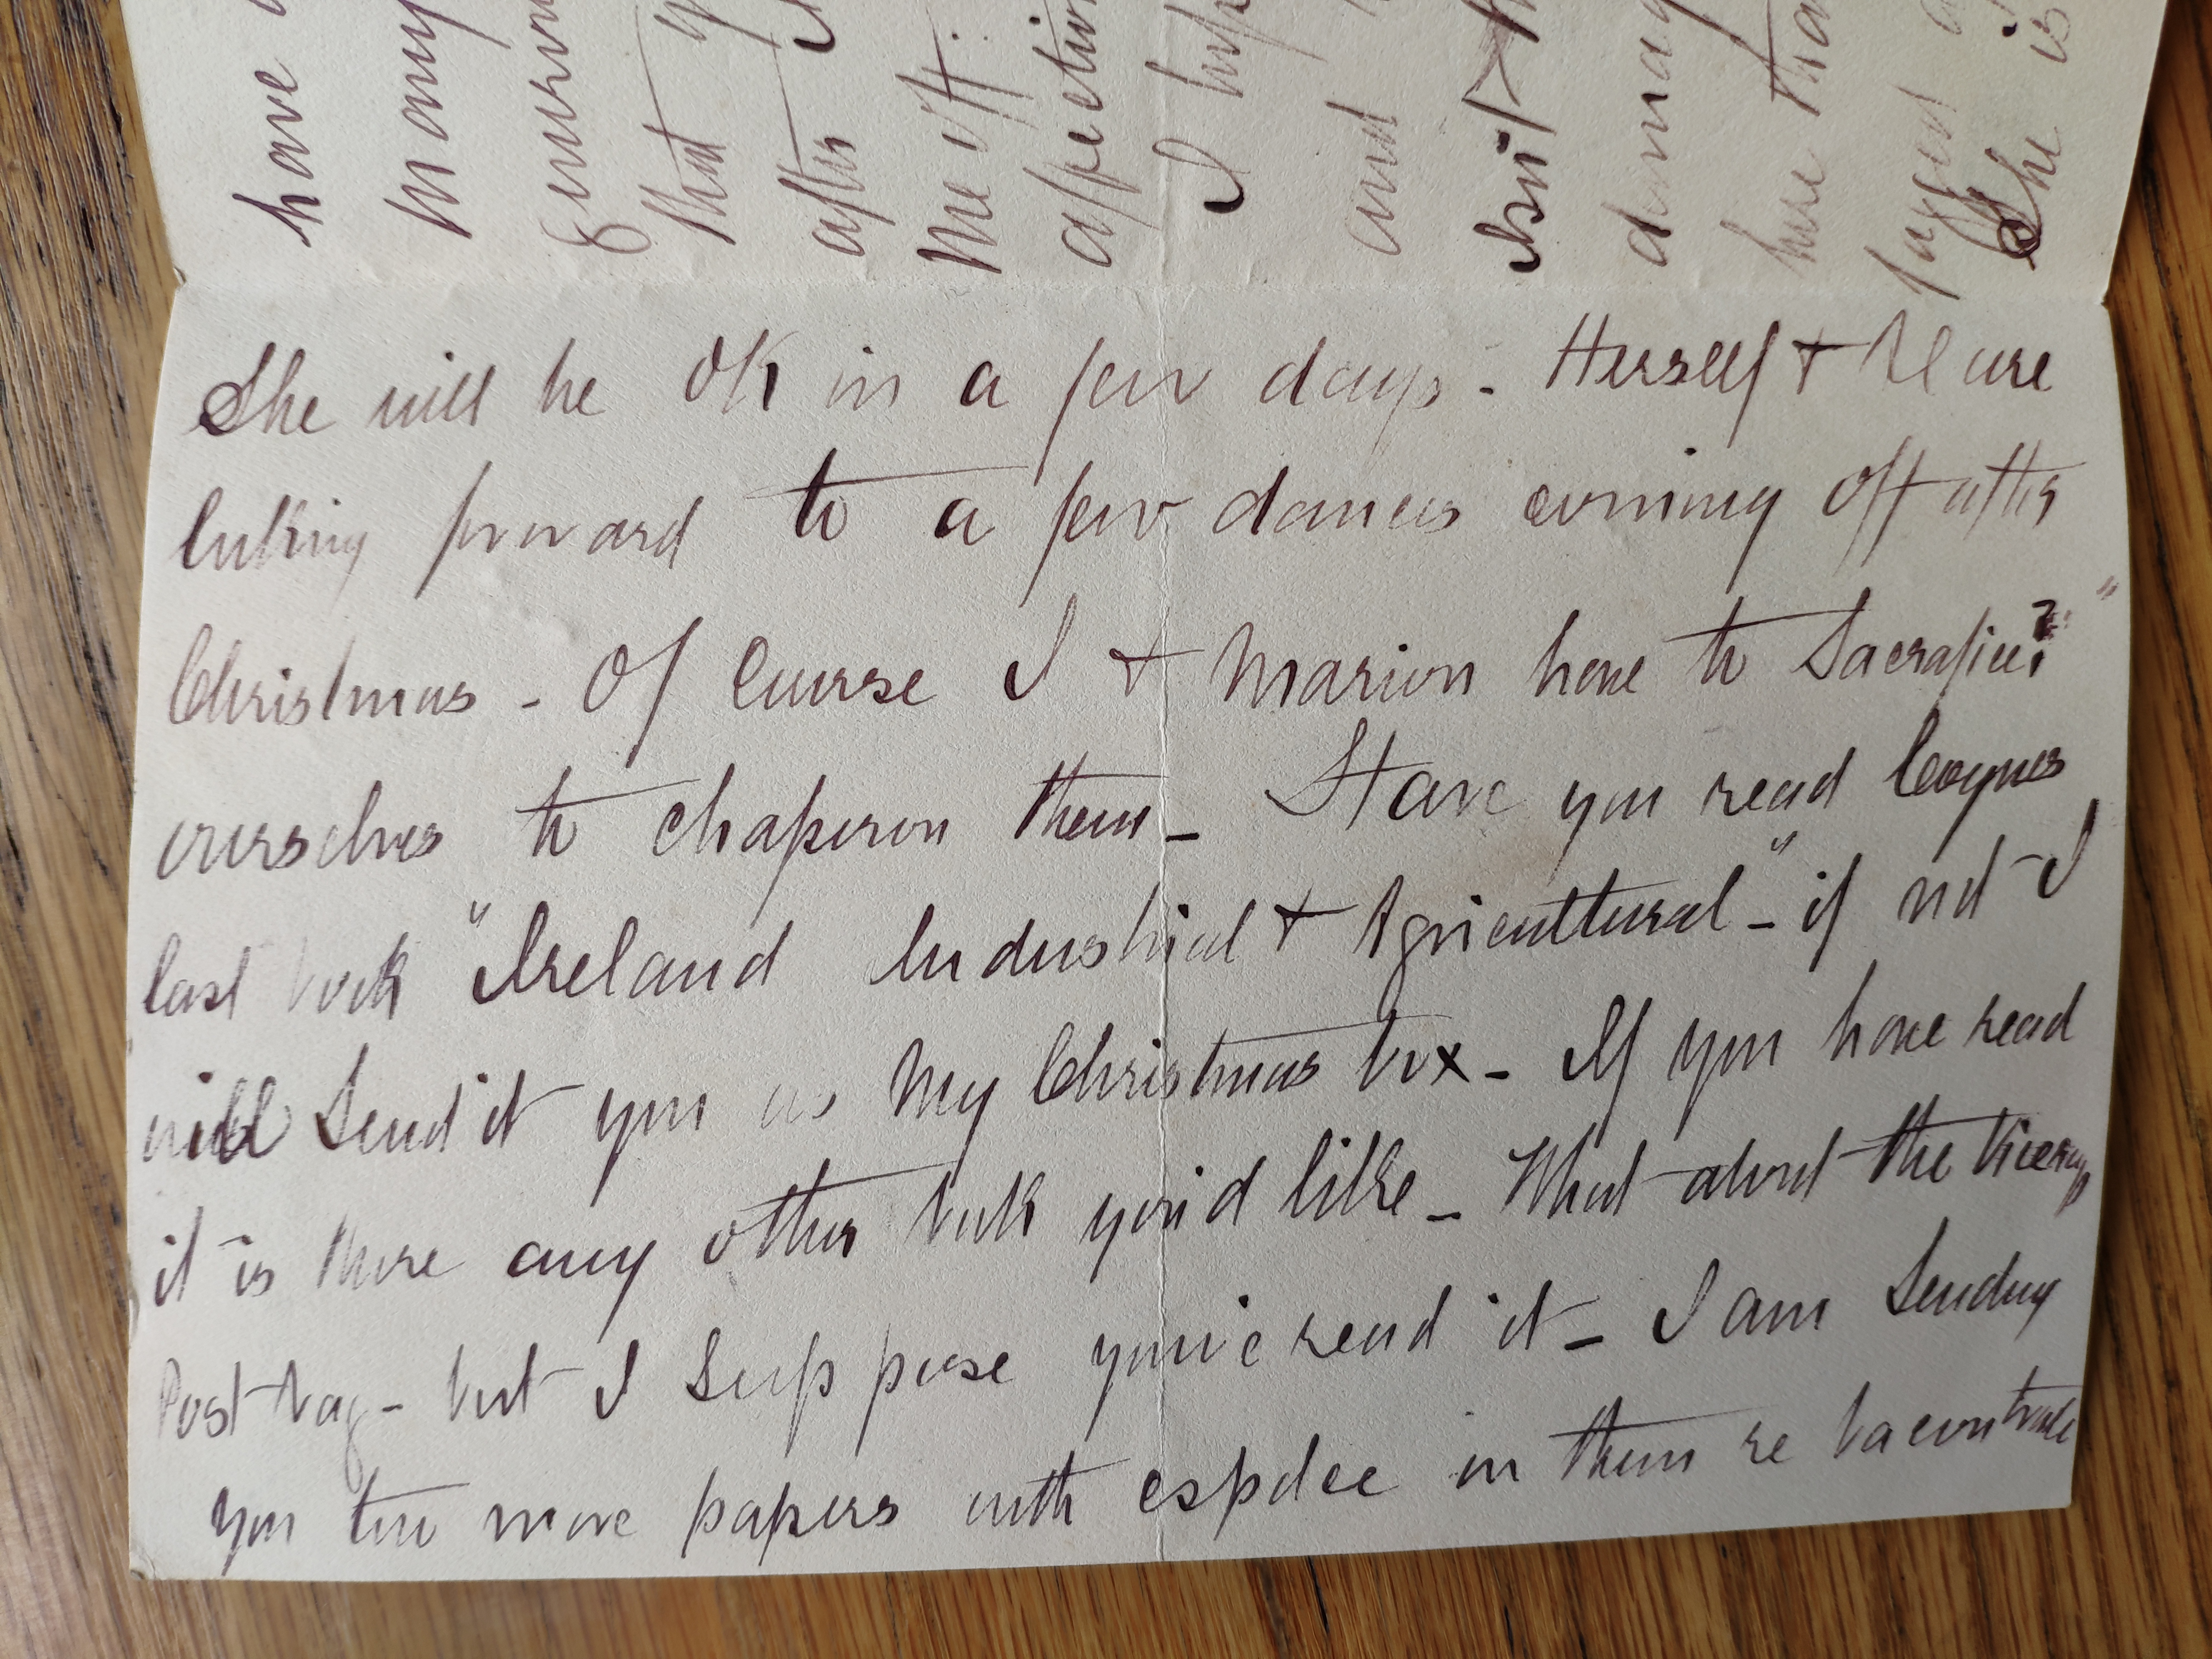 have
many
that
after
me off:
affection
I hope
and
Isn't
damag
here tha
She is
She will be OK in a few days - Herself + Al are
looking forward to a few dances coming off after
Christmas - Of Course I + Marion have to "Sacrafice?"
ourselves to chaperon them - Have you read Coynes
last book "Ireland Industrial + Agricultural" - if not I
will Send it you as My Christmas box - If you have read
it is there any other book you'd like - What about the Viceroys
Post bag - but I Suppose you've read it - I am Sending
you two more papers with in them re bacon trade